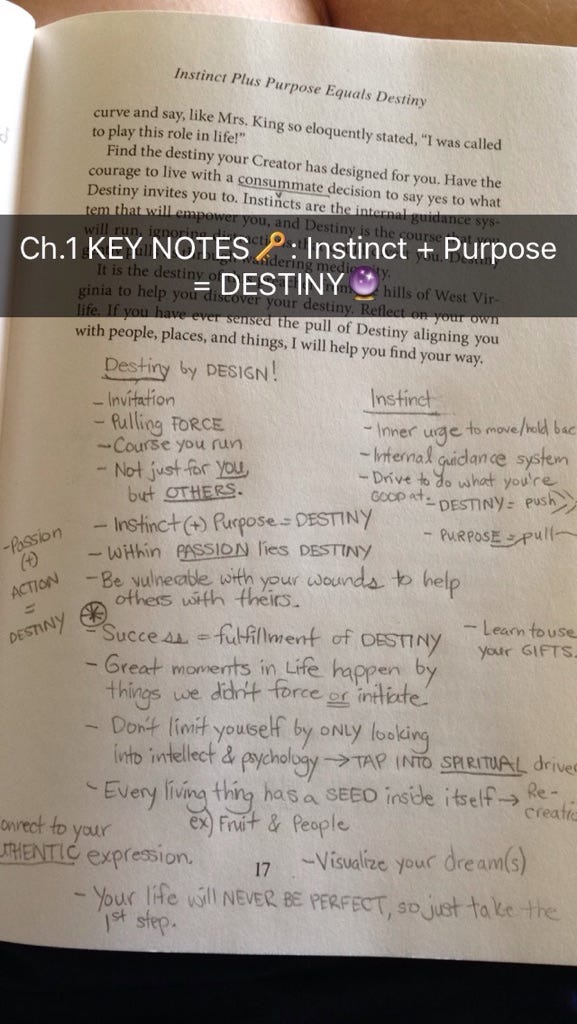 Instinct Plus Purpose Equals Destiny
curve and say, like Mrs. King so eloquently stated, “I was called
to play this role in life!”
Find the destiny your Creator has designed for you. Have the
courage to live with a consummate decision to say yes to what
Destiny invites you to. Instincts are the internal guidance sys-
tem that will empower you, and Destiny is the course that you
will run, ignoring
Ch.1 KEY NOTES🔑: Instinct + Purpose
= DESTINY🔮
wandering mediocrity.
It is the destiny of hills of West Vir-
ginia to help you discover your destiny. Reflect on your own
life. If you have ever sensed the pull of Destiny aligning you
with people, places, and things, I will help you find your way.
Destiny by DESIGN!
- Invitation
- Pulling FORCE
- Course you run
- Not just for YOU,
but OTHERS.
Instinct
- Inner urge to move/hold bac
- Internal guidance system
- Drive to do what you're
GOOD at.
- DESTINY = push>>
- PURPOSE = pull
- Instinct (+) Purpose = DESTINY
- Within PASSION lies DESTINY
- Be vulnerable with your wounds to help
others with theirs.
-Passion
(+)
ACTION
=
DESTINY
- Success = fulfillment of DESTINY
- Learn to use
your GIFTS.
- Great moments in Life happen by
things we didn't force or initiate.
- Don't limit yourself by ONLY looking
into intellect & psychology → TAP INTO SPIRITUAL driver
- Every living thing has a SEED inside itself → Re-
creatio
ex) Fruit & People
onnect to your
UTHENTIC expression.
17
- Visualize your dream(s)
- Your life will NEVER BE PERFECT, so just take the
1st step.